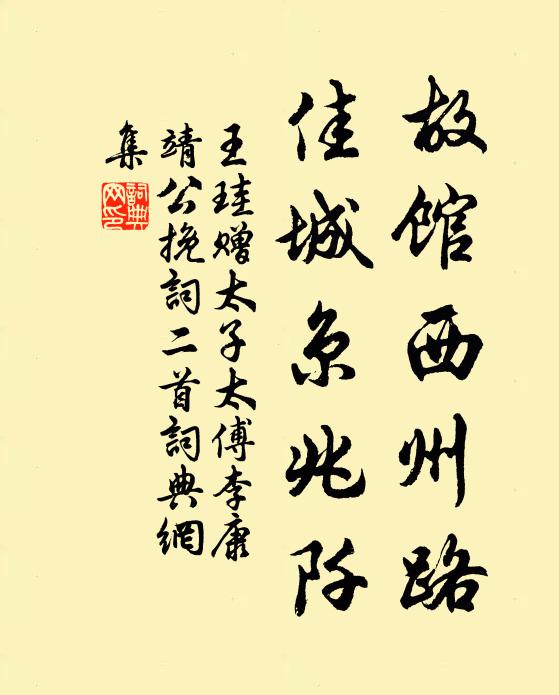 故馆西州路
佳城京兆阡
王珪赠太子太傅李康
靖公挽詞二首詞典網
集
詞典
网印